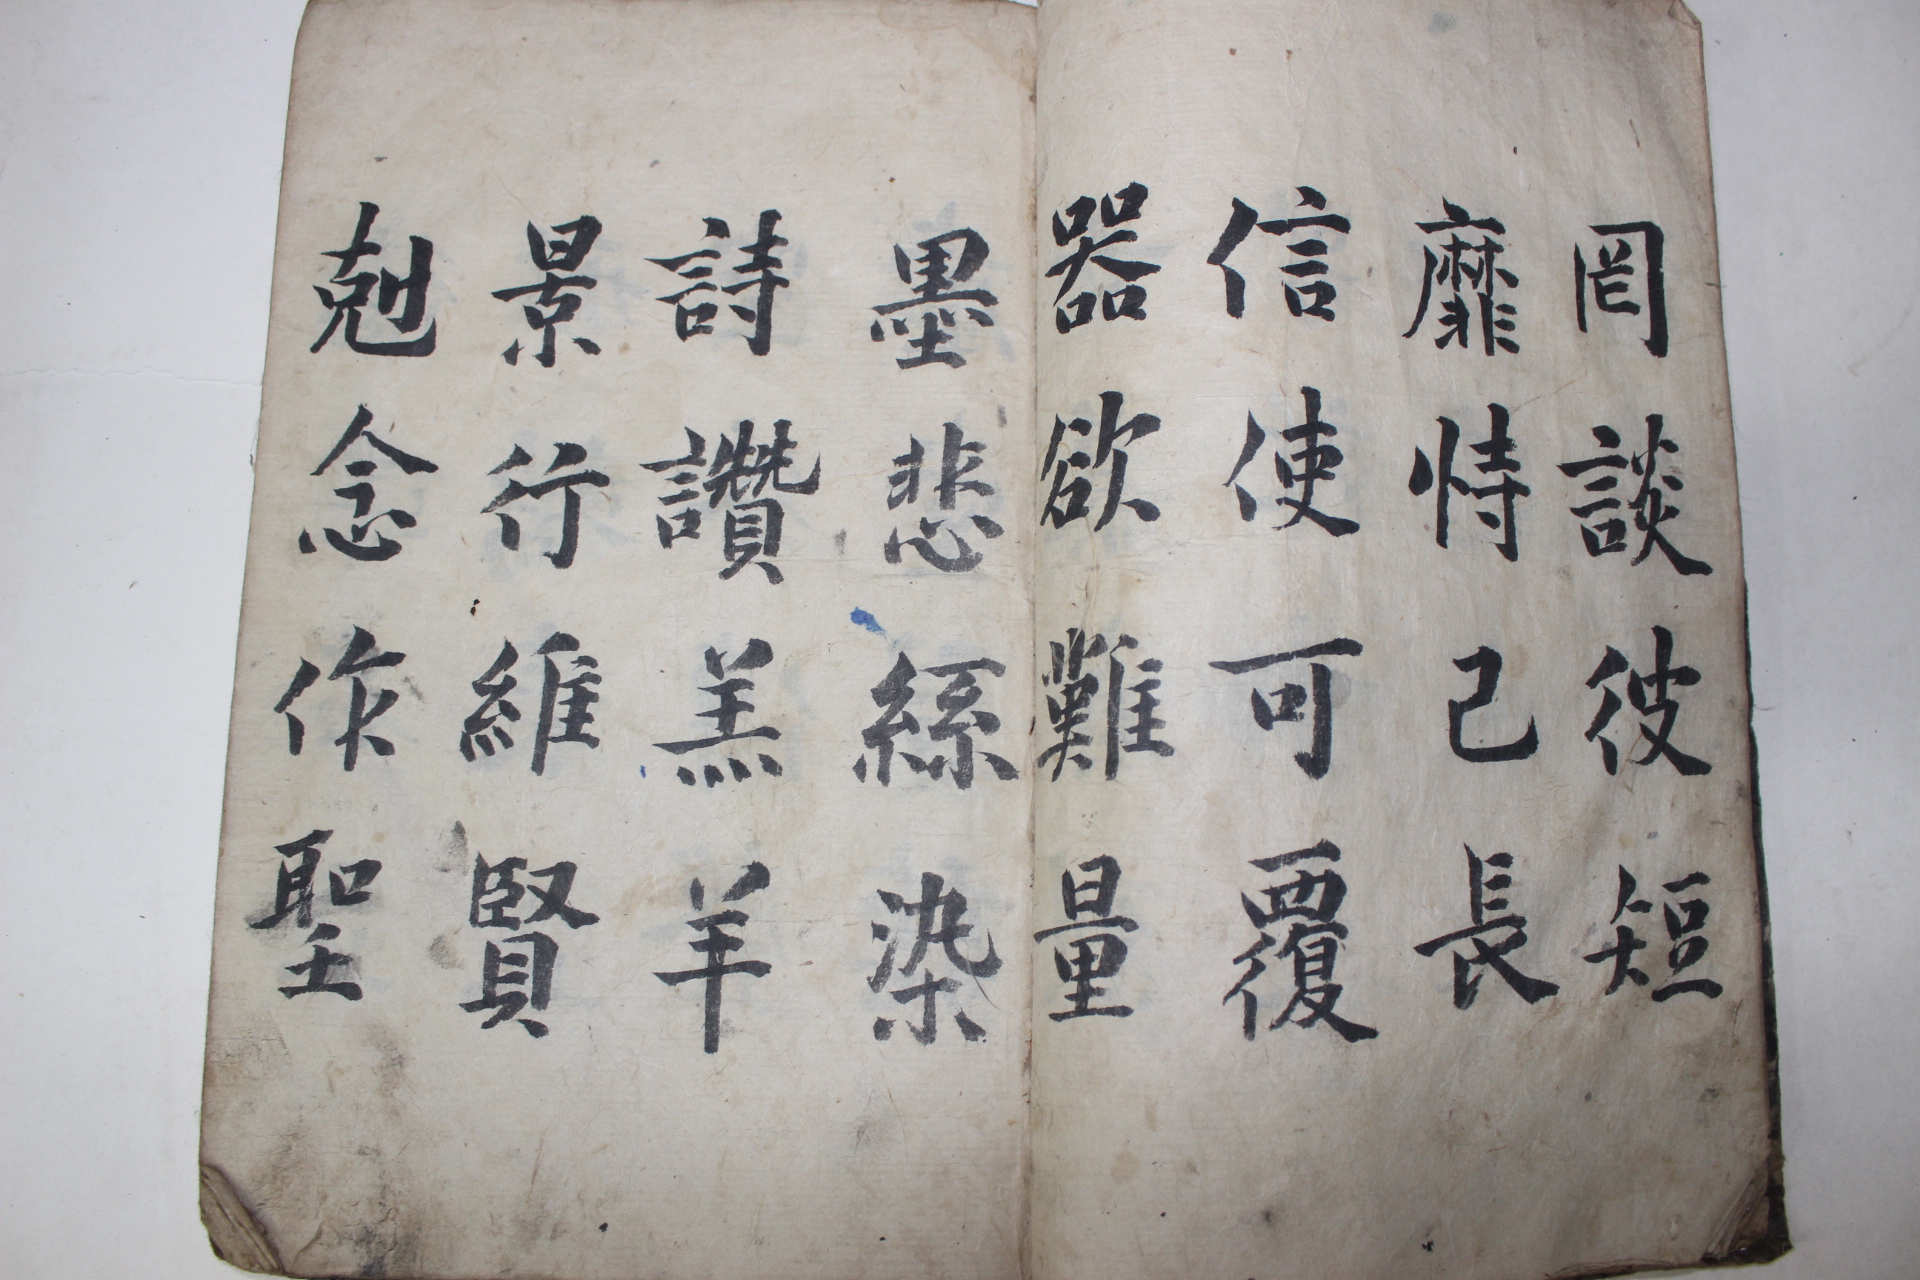 罔談彼短
靡恃己長
信使可覆
器欲難量
墨悲絲染
詩讚羔羊
景行維賢
剋念作聖